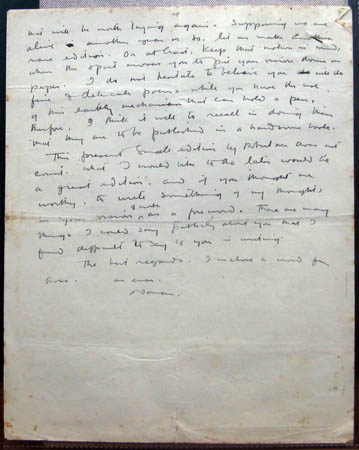 that will be worth trying again. Supposing we are
alive another year or so, let us make
rare edition. Or at least, keep that notion in mind,
when the spirit moves you to put your vision down on
paper. I do not hesitate to believe you will do
few delicate poems while you have the use
of this earthly mechanism that can hold a pen.
Therefore, I think it well to recall in doing them
that they are to be published in a handsome book.
This present small edition by does not
count. What I would like to do later would be
a great edition, and if you thought me
worthy, to write something of my thoughts
on your vision, as a foreword. There are many
things I could say publicly about you that I
find difficult to say to you in writing.
The best regards. I enclose a word for
as ever